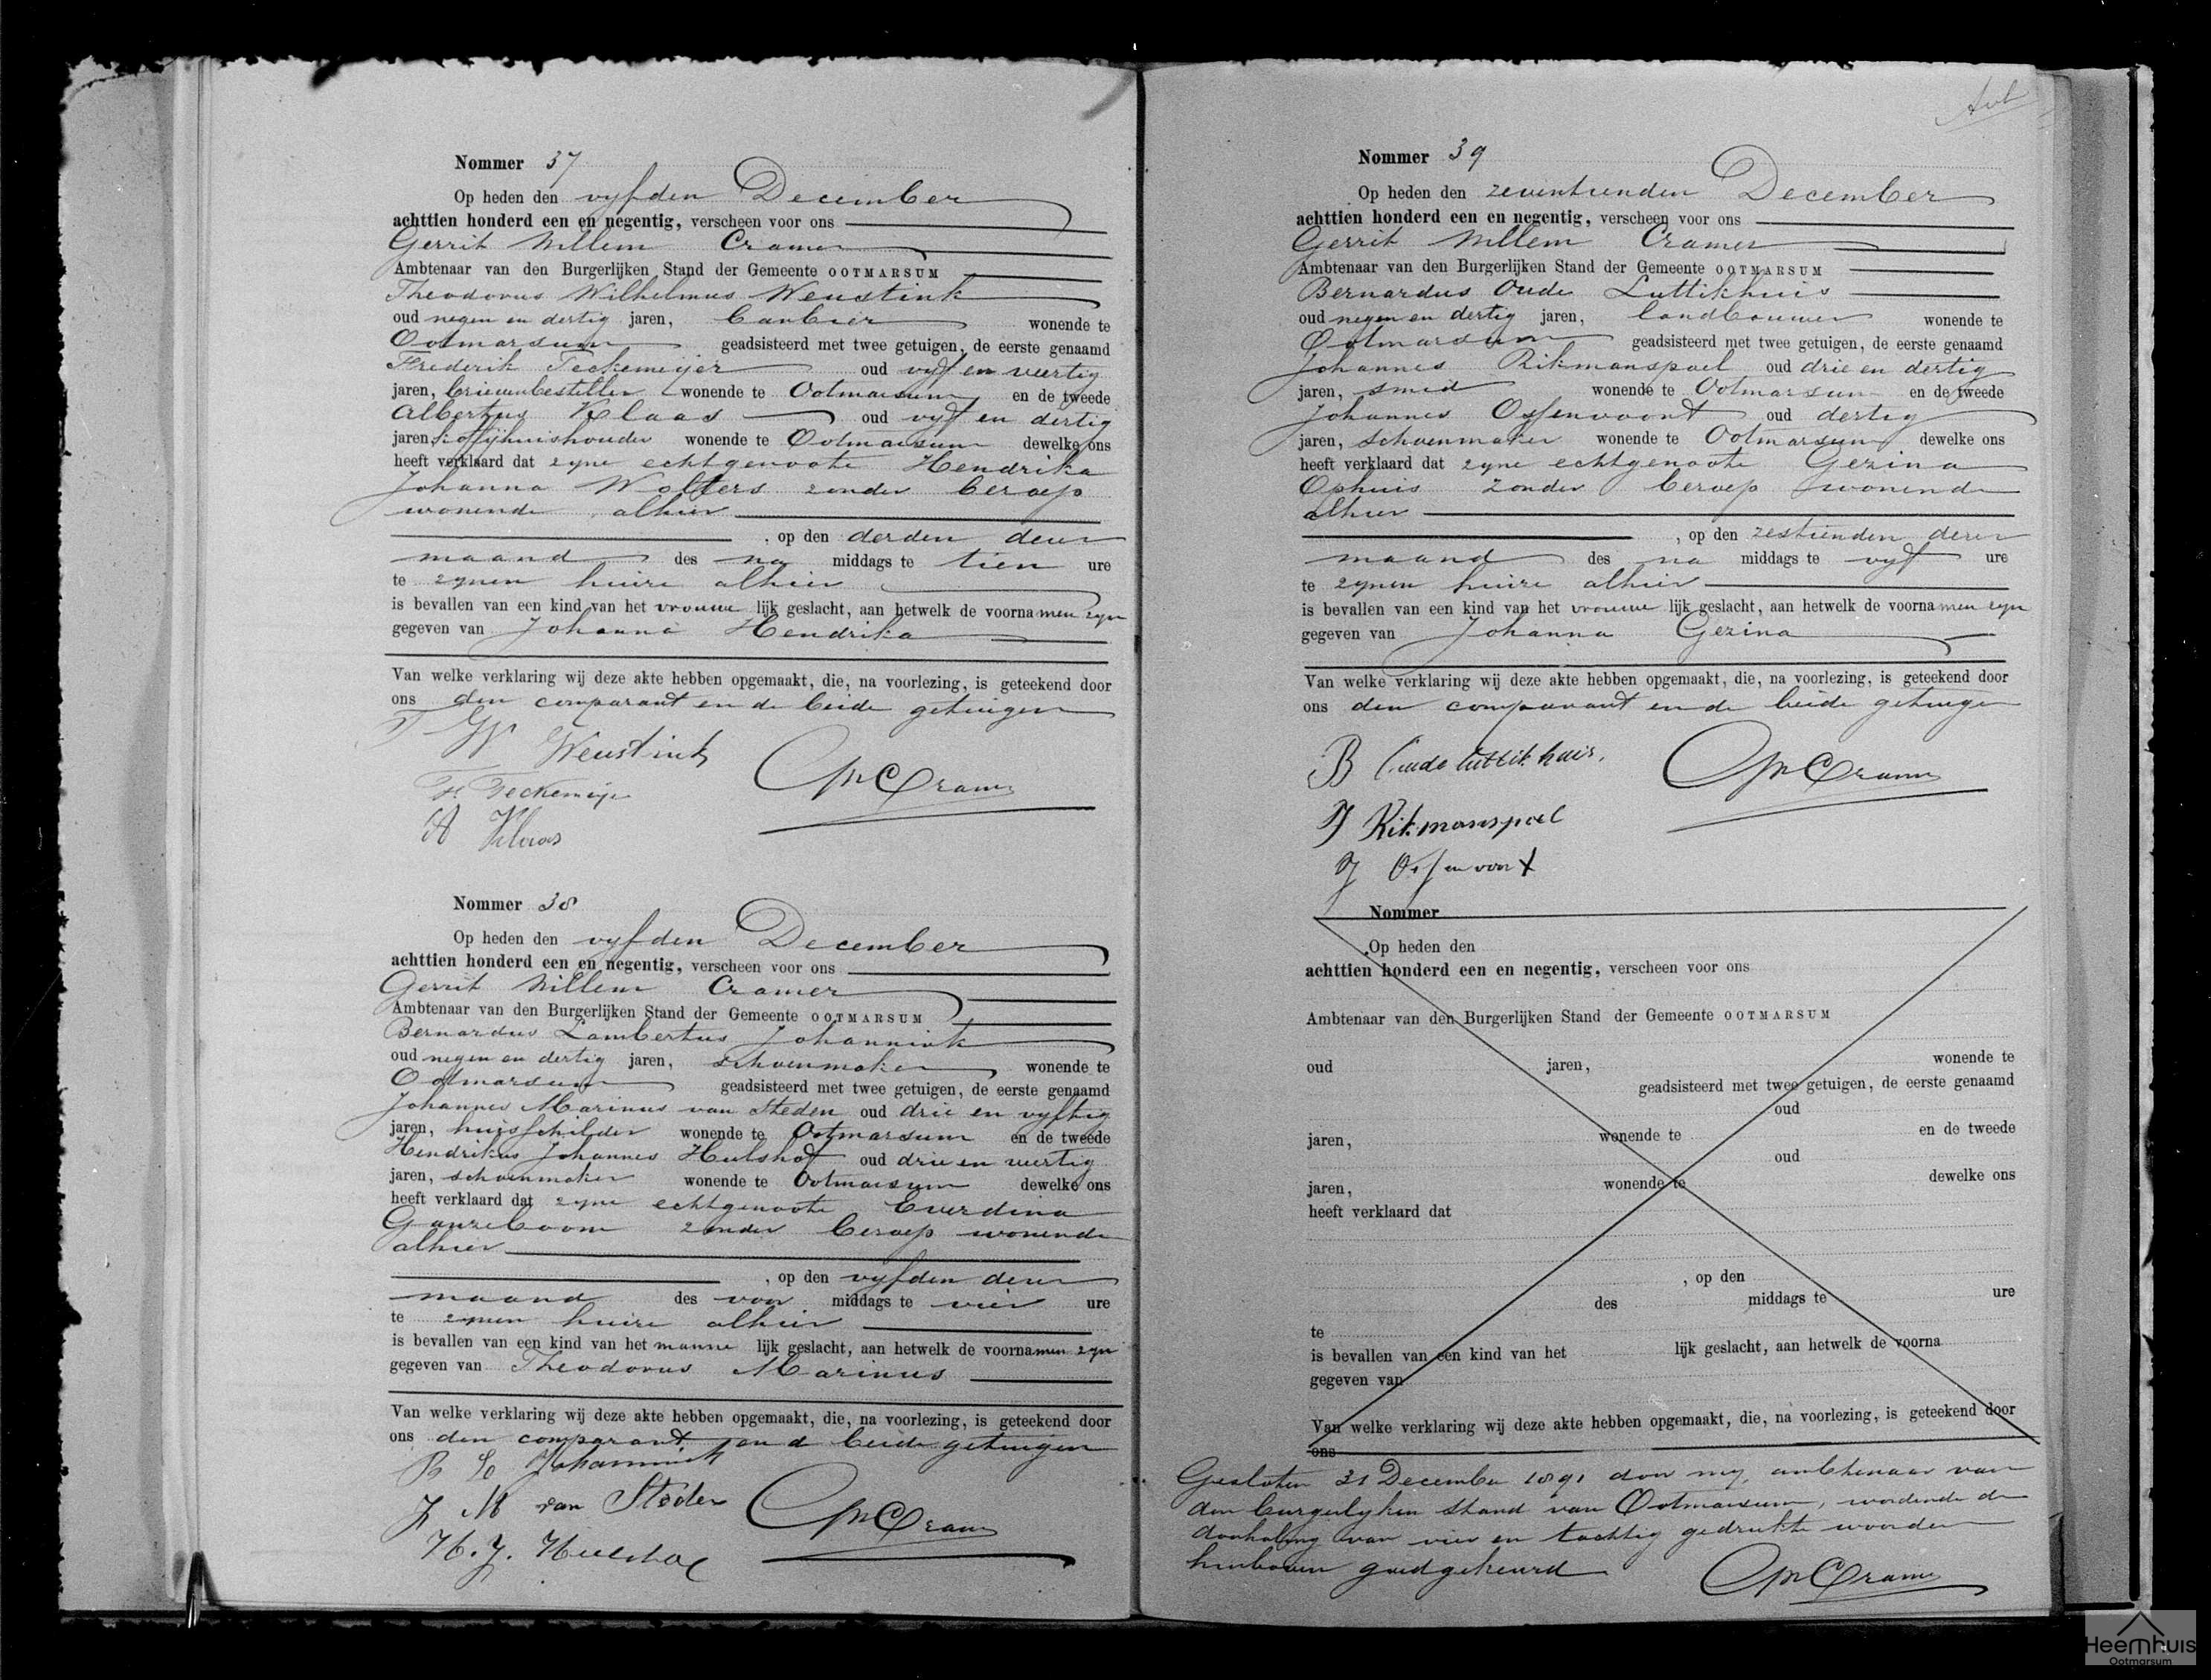 Nommer 37
Op heden den vyfden December
achttien honderd een en negentig, verscheen voor ons
Gerrit Willem Cramer
Ambtenaar van den Burgerlijken Stand der Gemeente OOTMARSUM
Theodorus Wilhelmus Weustink
oud negen en dertig jaren, barbier wonende te
Ootmarsum geadsisteerd met twee getuigen, de eerste genaamd
Frederik Teckemeijer oud vyf en veertig
jaren, brievenbesteller wonende te Ootmarsum en de tweede
Albertus Klaas oud vyf en dertig
jaren, koffijhuishouder wonende te Ootmarsum dewelke ons
heeft verklaard dat zyne echtgenoote Hendrika
Johanna Wolters zonder beroep
wonende alhier
, op den derden dezer
maand des na middags te tien ure
te zynen huize alhier
is bevallen van een kind van het vrouwe lijk geslacht, aan hetwelk de voornamen zyn
gegeven van Johanna Hendrika
Van welke verklaring wij deze akte hebben opgemaakt, die, na voorlezing, is geteekend door
ons den comparant en de beide getuigen
T W Weustink
F. Teckemeije
A Klaas
GWCramer
Nommer 38
Op heden den vyfden December
achttien honderd een en negentig, verscheen voor ons
Gerrit Willem Cramer
Ambtenaar van den Burgerlijken Stand der Gemeente OOTMARSUM
Bernardus Lambertus Johannink
oud negen en dertig jaren, schoenmaker wonende te
Ootmarsum geadsisteerd met twee getuigen, de eerste genaamd
Johannes Marinus van Steden oud drie en vyftig
jaren, huisschilder wonende te Ootmarsum en de tweede
Hendrikus Johannes Hulshof oud drie en veertig
jaren, schoenmaker wonende te Ootmarsum dewelke ons
heeft verklaard dat zyne echtgenoote Everdina
Ganzeboom zonder beroep wonende
alhier
, op den vyfden dezer
maand des voor middags te vier ure
te zynen huize alhier
is bevallen van een kind van het manne lijk geslacht, aan hetwelk de voornamen zyn
gegeven van Theodorus Marinus
Van welke verklaring wij deze akte hebben opgemaakt, die, na voorlezing, is geteekend door
ons den comparant en d beide getuigen
B L Johannink
J M van Steden
H. J. Hulshof
GWCramer
Nommer 39
Op heden den zeventienden December
achttien honderd een en negentig, verscheen voor ons
Gerrit Willem Cramer
Ambtenaar van den Burgerlijken Stand der Gemeente OOTMARSUM
Bernardus Oude Luttikhuis
oud negen en dertig jaren, landbouwer wonende te
Ootmarsum geadsisteerd met twee getuigen, de eerste genaamd
Johannes Rikmanspoel oud drie en dertig
jaren, smid wonende te Ootmarsum en de tweede
Johannes Ossenvoort oud dertig
jaren, schoenmaker wonende te Ootmarsum dewelke ons
heeft verklaard dat zyne echtgenoote Gezina
Ophuis zonder beroep wonende
alhier
, op den zestienden dezer
maand des na middags te vyf ure
te zynen huize alhier
is bevallen van een kind van het vrouwe lijk geslacht, aan hetwelk de voornamen zyn
gegeven van Johanna Gezina
Van welke verklaring wij deze akte hebben opgemaakt, die, na voorlezing, is geteekend door
ons den comparant en de beide getuige
B Oude luttikhuis.
GWCramer
J Rikmanspoel
J Ossenvoort
Nommer
Op heden den
achttien honderd een en negentig, verscheen voor ons
Ambtenaar van den Burgerlijken Stand der Gemeente OOTMARSUM
oud jaren, wonende te
geadsisteerd met twee getuigen, de eerste genaamd
oud
jaren, wonende te en de tweede
oud
jaren, wonende te dewelke ons
heeft verklaard dat
, op den
des middags te ure
te
is bevallen van een kind van het lijk geslacht, aan hetwelk de voorna
gegeven van
Van welke verklaring wij deze akte hebben opgemaakt, die, na voorlezing, is geteekend door
ons
Gesloten 31 December 1891 door my, ambtenaar van
den burgerlyken stand van Ootmarsum, wordende de
doorhaling van vier en tachtig gedrukte woorden
hierboven goedgekeurd
GWCramer
Heemhuis
Ootmarsum